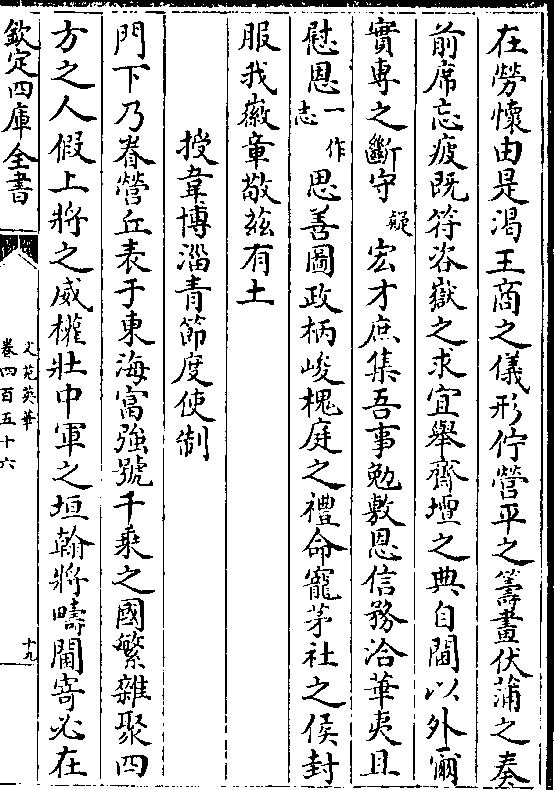 在勞懷由是渴王商之儀形佇營平之籌畫伏蒲之奏
前席忘疲既符咨嶽之求宜舉齋壇之典自閫以外爾
實專之斷守疑宏才庶集吾事勉敷恩信務洽華夷且
慰恩一作志思善圖政柄峻槐庭之禮命寵茅社之侯封
服我徽章敬兹有土
授韋博淄青節度使制
門下乃眷營丘表于東海富強號千乘之國繁雜聚四
方之人假上將之威權壯中軍之垣翰將疇閫寄必在
欽定四庫全書
文苑英華
卷四百五十六
十九